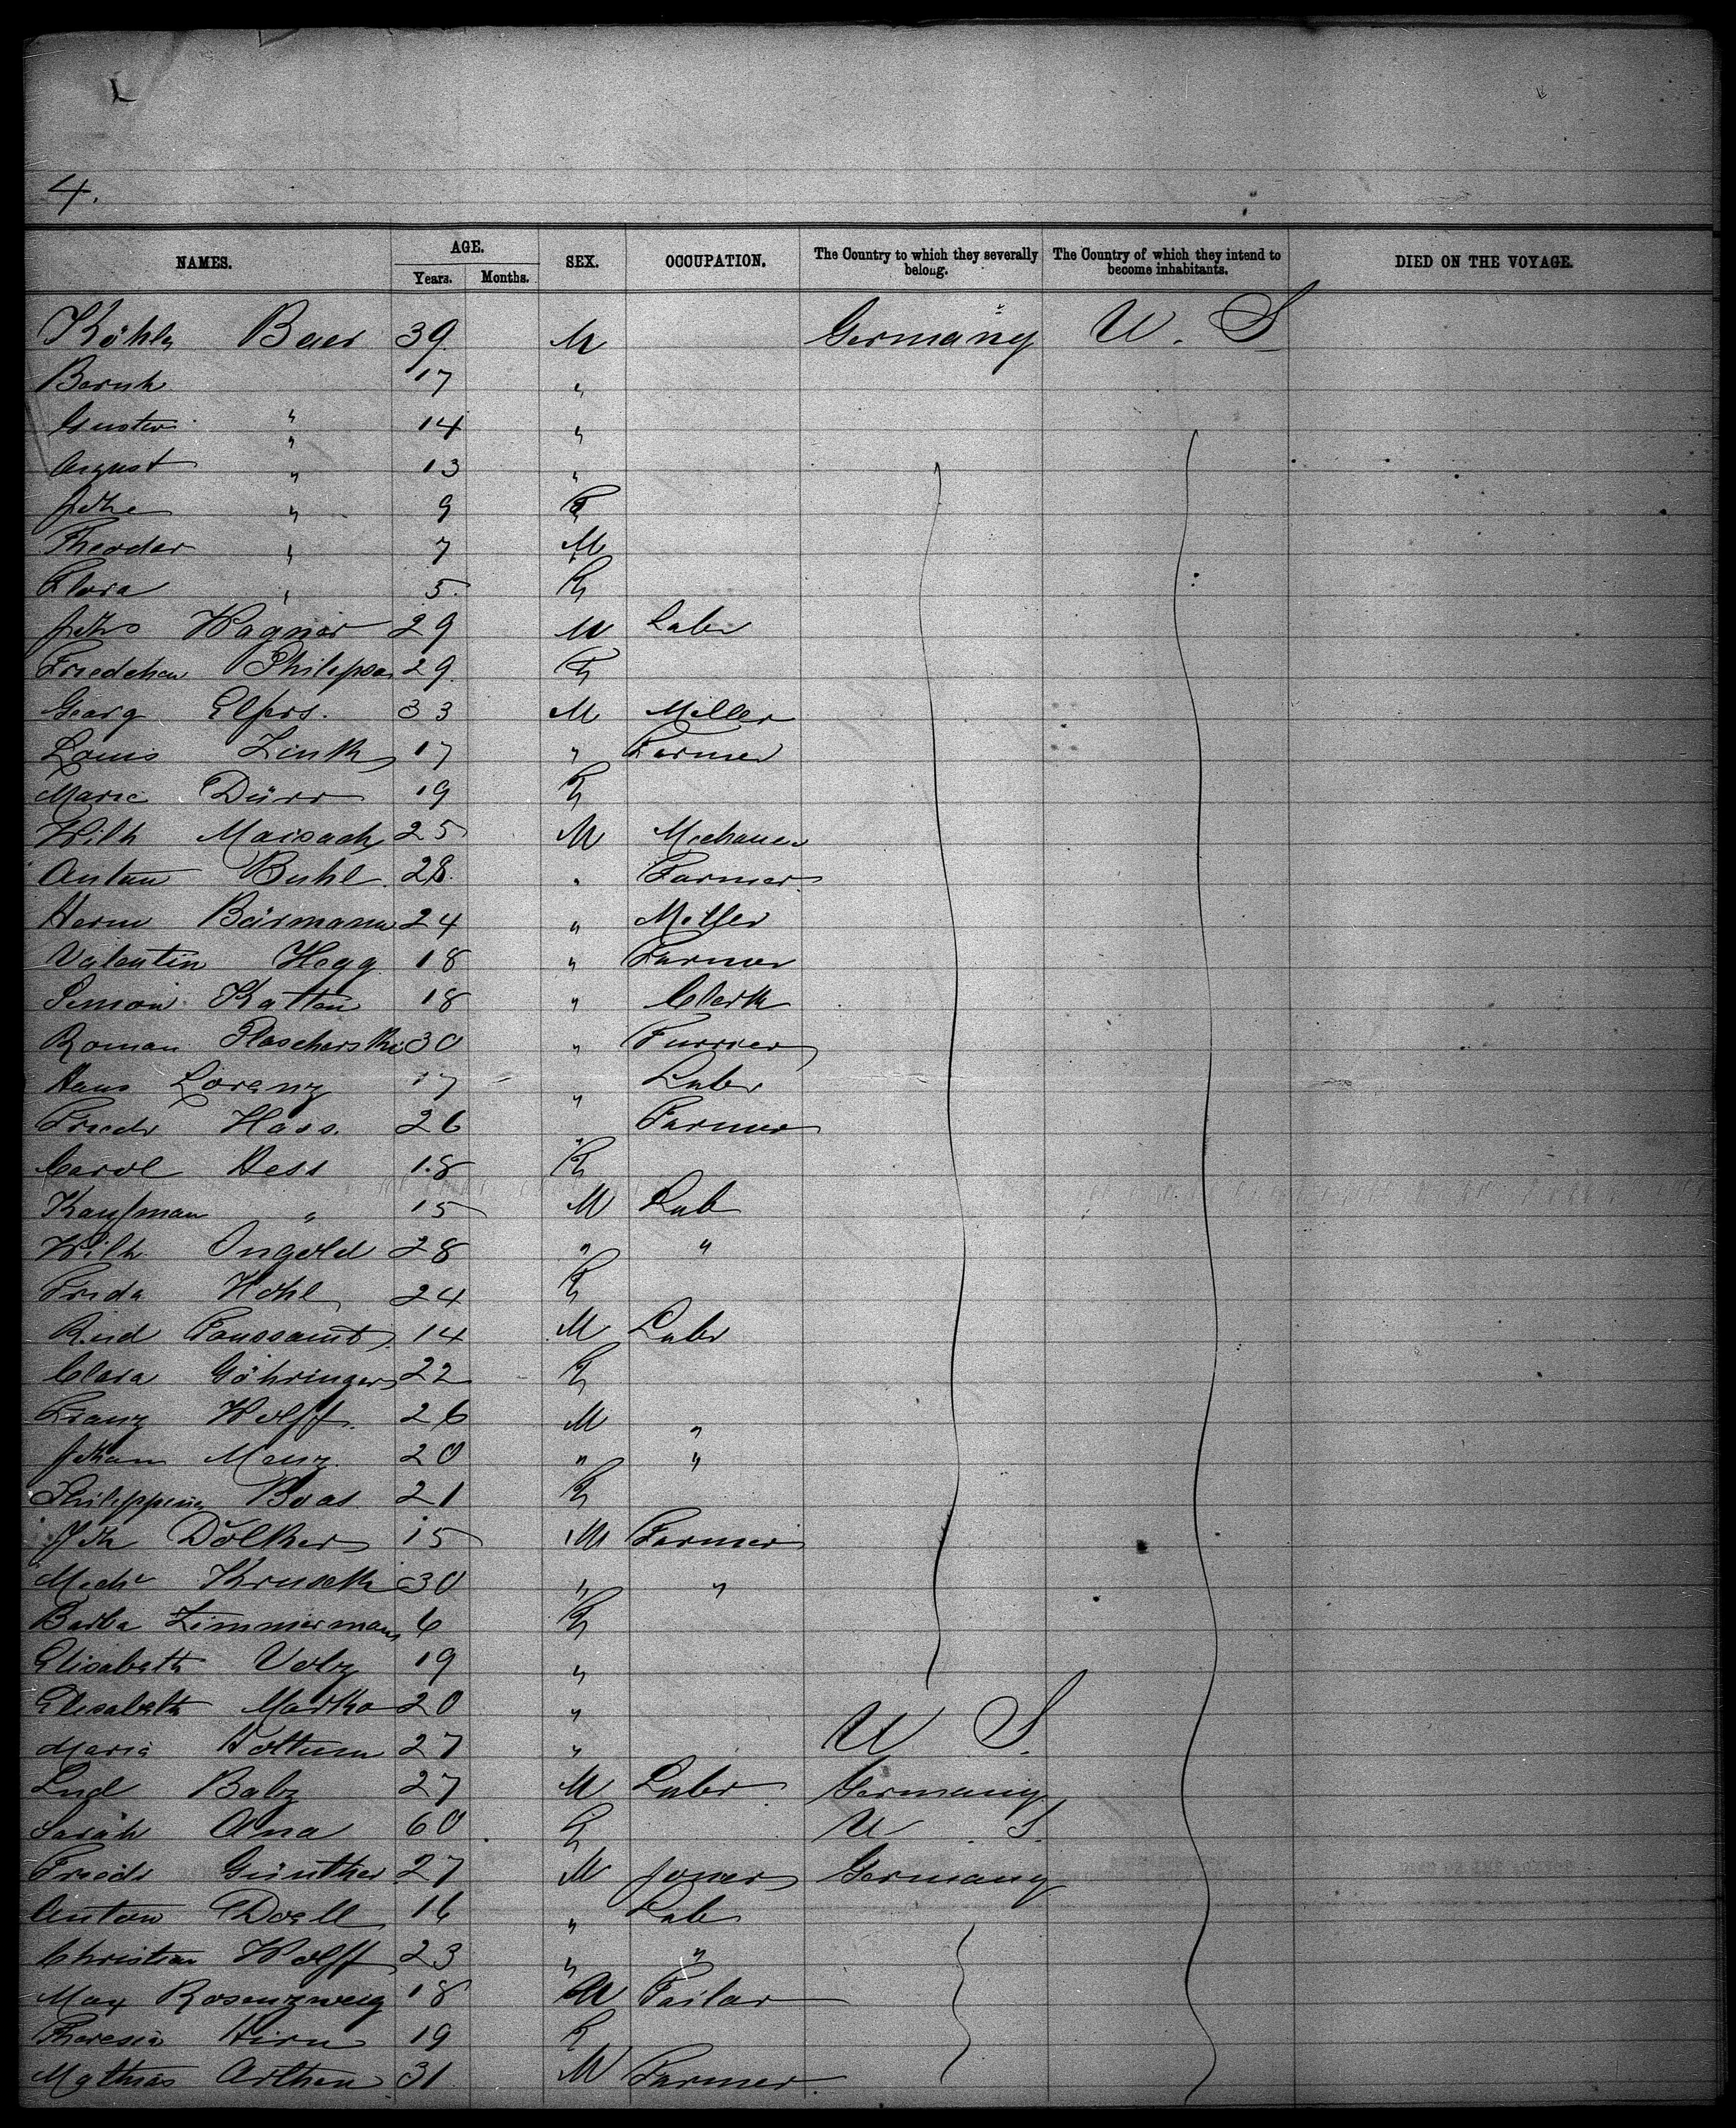 4.
NAMES. AGE. Years. Months. SEX. OCCUPATION. The Country to which they severally belong. The Country of which they intend to become inhabitants. DIED ON THE VOYAGE.
Baer 39 M Germany U. S
Bernh 17 "
Gustav " 14 "
August " 13 "
" 9 F
Theodor " 7 M
Flora " 5 F
Wagner 29 M Labr
29 F
Georg Elfers. 33 M Miller
Louis Zink 17 " Farmer
Marie Dürr 19 F
Wilh Maisach 25 M
Anton Buhl 28 " Farmer
Herm Beirmann 24 " Miller
Valentin Hegg 18 " Farmer
Simon Katten 18 " Clerk
Roman 30 " Furrier
Hans Lorenz 17 " Labr
Friedr Hass. 26 " Farmer
Carol Hess 18 F
Kaufman " 15 M Lab
Wilh Ongold 28 " "
Frida Hohl 24 F
Rud Toussaint 14 M Labr
Clara Göhringer 22 F
Franz Wolff. 26 M "
Menz 20 " "
Boas 21 F
Joh Dölker 15 M Farmer
30 " "
Barba Zimmermann 6 F
Elisabeth Volz 19 "
Elisabeth 20 "
Maria Holtum 27 " U S.
Lud Balz 27 M Labr Germany
Sarah Ana 60 F U S.
Friedr Günther 27 M Joner Germany
Anton Doell 16 " Lab
Christian Wolff 23 " "
Max Rosenzweig 18 M Tailor
Theresia Hirn 19 F
Mathias Arthen 31 M Farmer